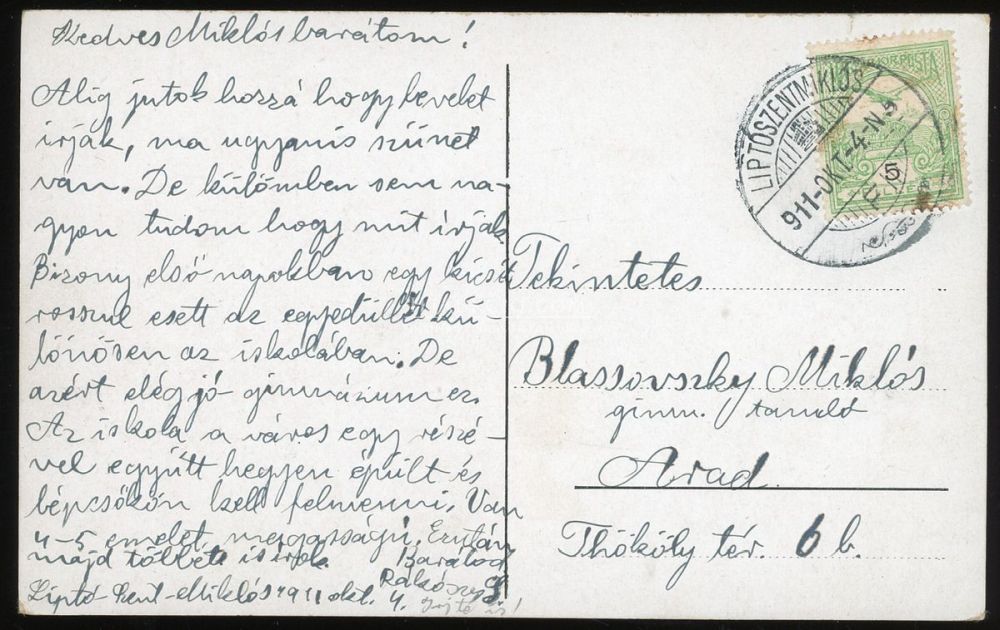 Kedves Miklós barátom!
Alig jutok hozzá hogy levelet
irjak, ma ugyanis szünet
van. De külömben sem na-
gyon tudom hogy mit irjak.
Bizony első napokban egy kicsit
rosszul esett az egyedüllét kü-
lönösen az iskolában. De
azért elég jó gimnázium ez.
Az iskola a város egy részé-
vel együtt hegyen épült és
lépcsőkön kell felmenni. Van
4-5 emelet magasságú. Ezután
majd többet is irok. Barátod
Liptó-Szent-Miklós 1911 okt. 4.
LIPTÓSZENTMIKLÓS
911-OKT-4-N.5
5
Tekintetes
Blassovszky Miklós
gimn. tanuló
Arad.
Thököly tér. 6 b.